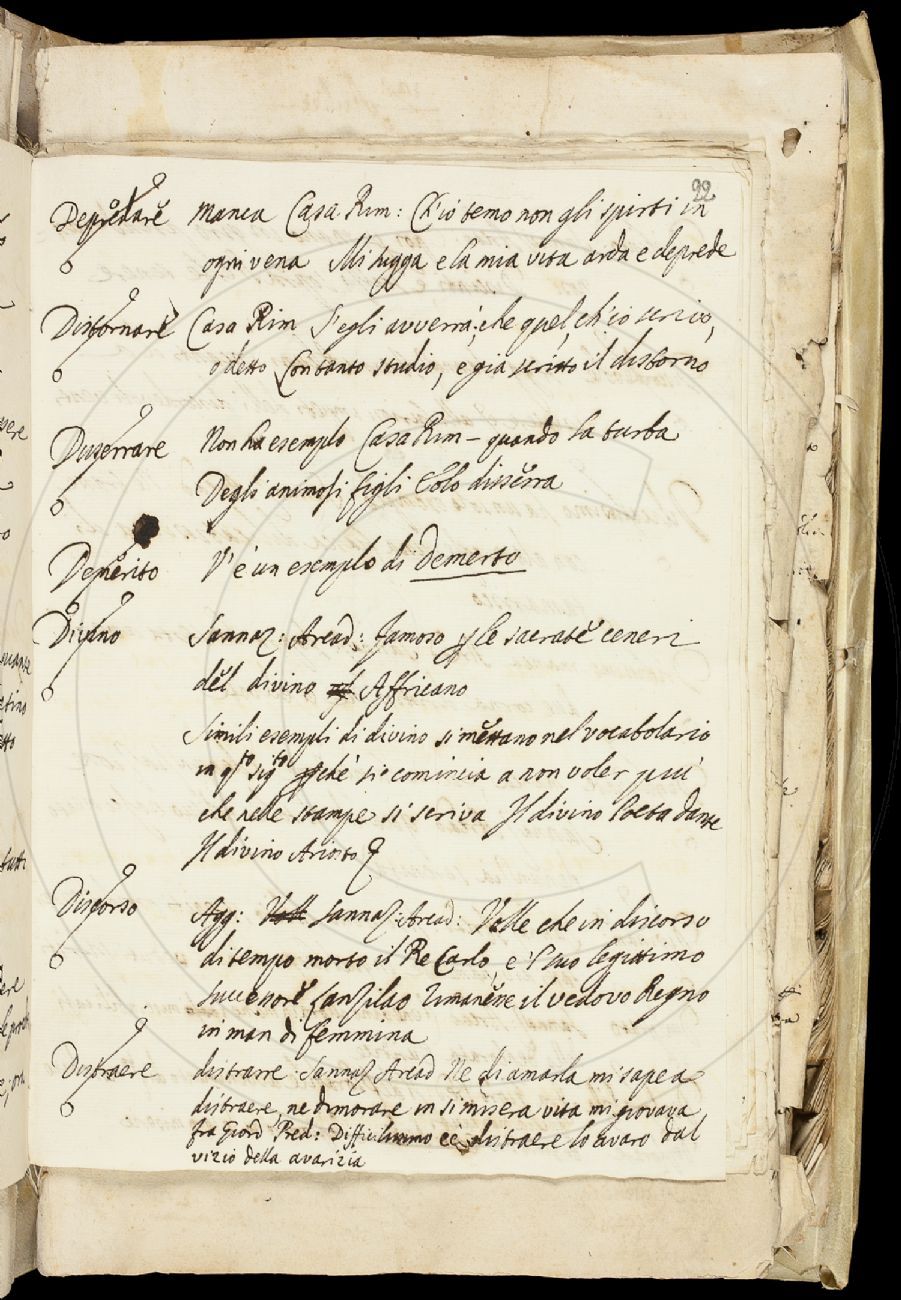 22
Depredare manca Casa Rim: Ch'io temo non gli spirti in
ogni vena Mi sugga e la mia vita arda e deprede
Distornare Casa Rim S'egli avverrà, che quel, ch'io scrivo,
o detto Con tanto studio, e già scritto il distorno
Disserrare Non ha esemplo Casa Rim – quando la turba
Degli animosi figli Eolo disserra
Demerito V'è un esemplo di Demerto
Divino Sannaz: Arcad: famoso p le sacrate ceneri
del divino Affricano
Simili esempli di divino si mettano nel vocabolario
in qsto sigto pche si comincia a non voler più
che nelle stampe si scriva Il divino Poeta Dante
Il divino Ariosto
Discorso Agg: Sannaz: Arcad: Volle che in discorso
di tempo morto il Re Carlo, e 'l suo legittimo
successore Lanzilao rimanesse il vedovo Regno
in man di femmina
Distraere distrarre. Sannaz Arcad Ne di amarla mi sapea
distraere, ne dimorare in si misera vita mi giovava
fra Giord Pred: Difficilissimo è distraere lo avaro dal
vizio della avarizia